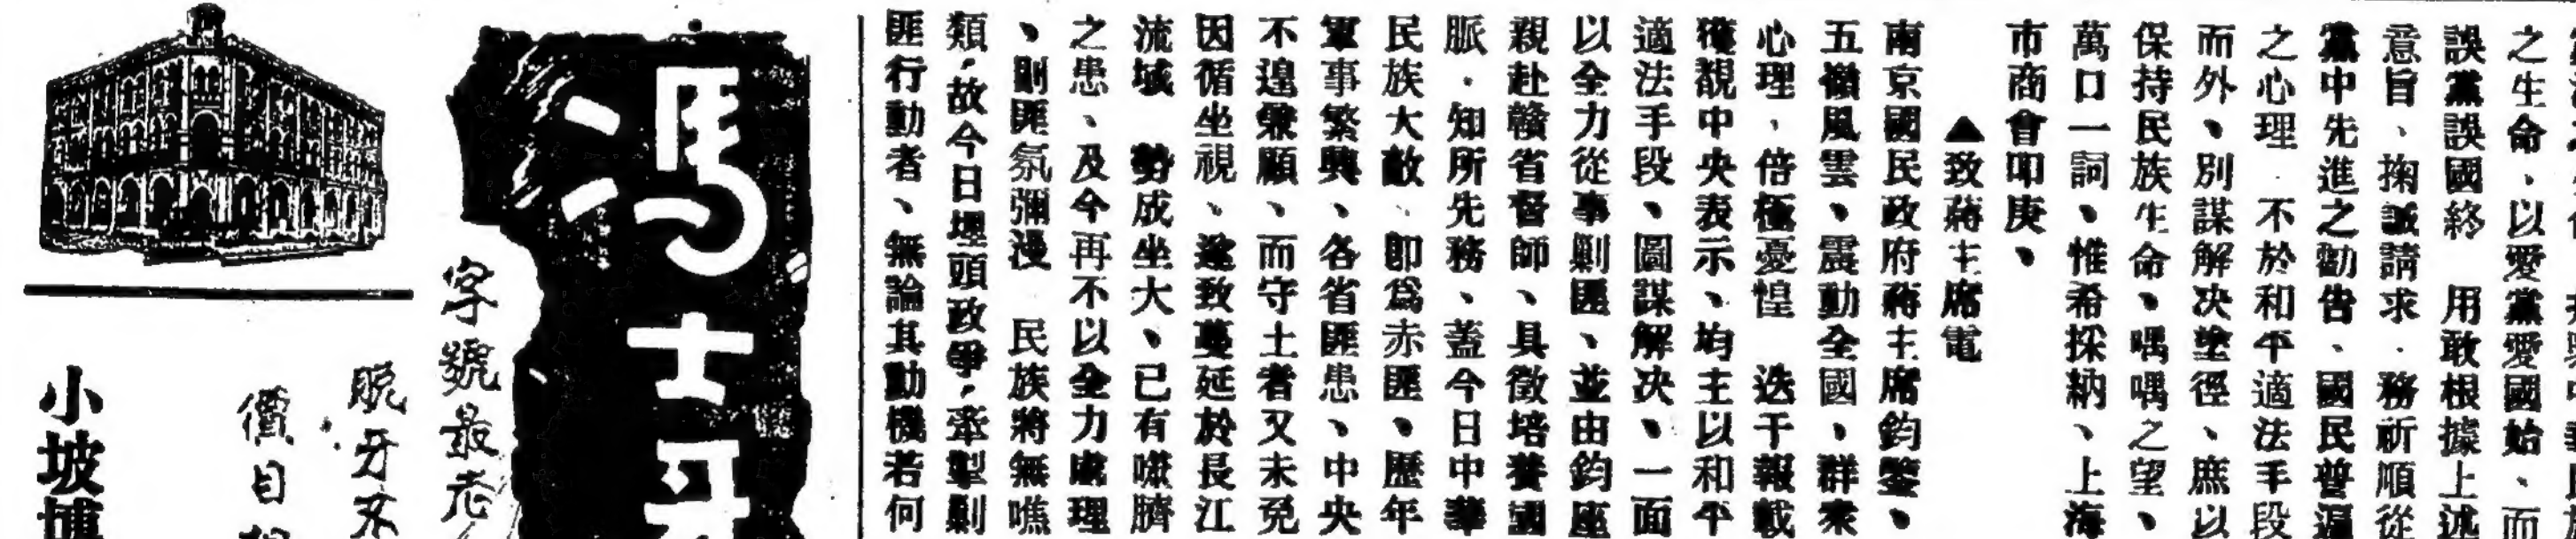 之生命、以愛黨愛國始、而
誤黨誤國終　用敢根據上述
意旨、掬誠請求．務祈順從
黨中先進之勸告、國民普遍
之心理．不於和平適法手段
而外、別謀解决塗徑、庶以
保持民族生命、喁喁之望、
萬口一詞、惟希採納、上海
市商會叩庚、
▲致蔣主席電
南京國民政府蔣主席鈞鑒、
五嶺風雲、震動全國、群衆
心理、倍極憂惶　迭于報載
獲覩中央表示、均主以和平
適法手段、圖謀解决、一面
以全力從事剿匪、並由鈞座
親赴贛省督師、具徵培養國
脈．知所先務、蓋今日中華
民族大敵、卽爲赤匪、歷年
軍事繁興、各省匪患、中央
不遑兼顧、而守土者又未免
因循坐視、遂致蔓延於長江
流域　勢成坐大、已有噬臍
之患、及今再不以全力處理
、則匪氛彌漫　民族將無噍
類，故今日埋頭政爭，牽掣剿
匪行動者、無論其動機若何
馮士
字號最老
脫牙不
價目
小坡